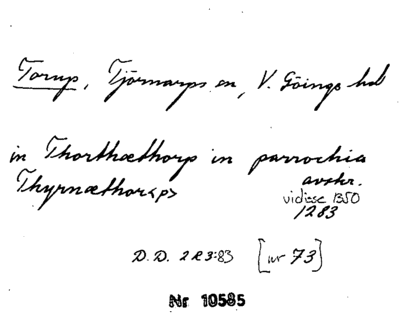 Torup, Tjörnarps sn, V. Göinge hd
in Thorthæthorp in parrochia
Thyrnæthor<p> avskr.
vidisse 1350
1283
D.D. 2 R 3:83 [nr 73]
Nr 10585